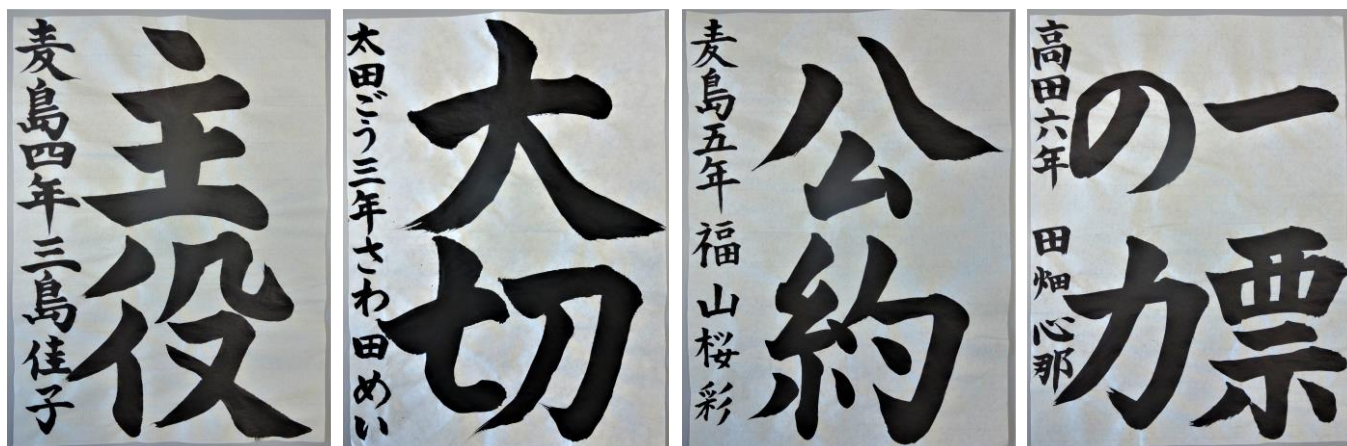 主役
麦島四年 三島佳子
大切
太田ごう三年 さわ田めい
公約
麦島五年 福山桜彩
一票
の力
高田六年 田畑心那